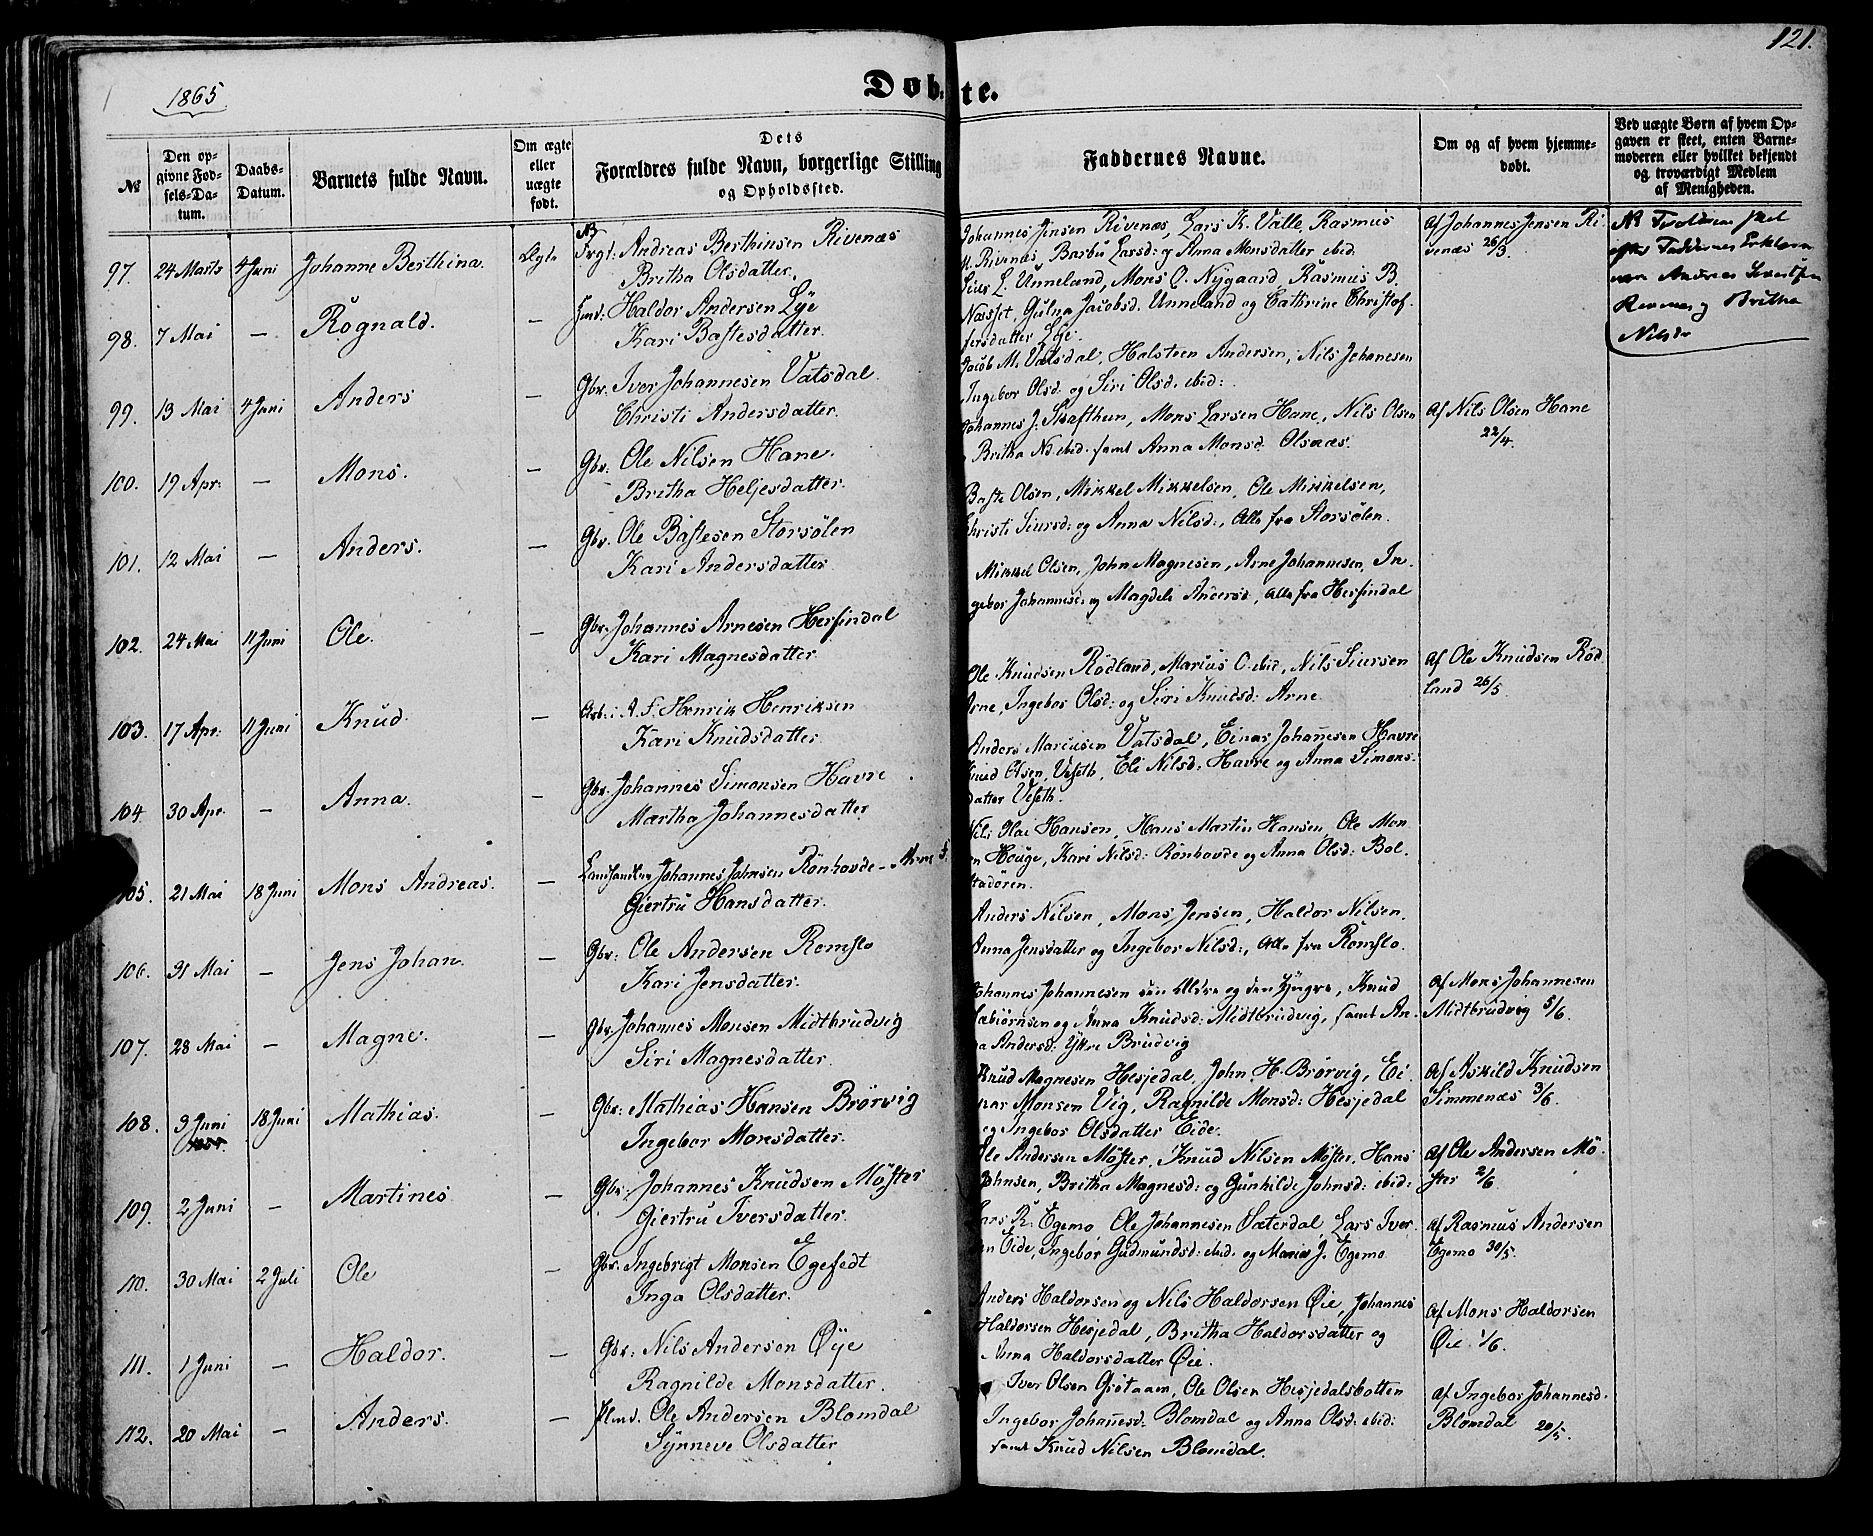 121.
1865
Døbte.
№
Den opgivne Fødsels-Datum.
Daabs-Datum.
Barnets fulde Navn.
Om ægte eller uægte født.
Dets Forældres fulde Navn, borgerlige Stilling og Opholdssted.
Faddernes Navne.
Om og af hvem hjemmedøbt.
Ved uægte Børn af hvem Opgaven er skeet, enten Barnemoderen eller hvilket bekjendt og troværdigt Medlem af Menigheden.
97. 24 Marts 4 Juni Johanne Berthina. Ægte
NB
Andreas Berthinsen Rivenæs
Britha Olsdatter.
Johannes Jensen Rivenæs, Lars K. Valle, Rasmus
Rivenæs, Barbu Larsd: og Anna Monsdatter ibid.
Af Johannes Jensen Ri
venæs 26/3.
98. 7 Mai — Rognald. —
Haldor Andersen Lye
Kari Bastesdatter.
L. Unneland, Mons O. Nygaard, Rasmus B.
Næsset, Gulna Jacobsd. Unneland og Cathrine Christof
fersdatter Lye.
99. 13 Mai 4 Juni Anders —
Gbr. Iver Johannesen Vatsdal.
Christi Andersdatter.
Jacob M. Vatsdal, Halsteen Andersen, Nils Johanesen
Ingebor Olsd. og Siri Olsd. ibid:
100. 19 Apr: — Mons. —
Gbr. Ole Nilsen Hane.
Britha Heljesdatter.
Johannes J. Skafthun, Mons Larsen Hane, Nils Olsen
Britha N. ibid. samt Anna Monsd. Olsnæs.
Af Nils Olsen Hane
22/4.
101. 12 Mai — Anders. —
Gbr. Ole Bastesen Storsølen
Kari Andersdatter
Baste Olsen, Mikkel Mikkelsen, Ole Mikkelsen,
Christi Siursd: og Anna Nilsd:, Alle fra Storsølen.
102. 24 Mai 11 Juni Ole. —
Gbr. Johannes Arnesen Herfindal
Kari Magnesdatter
Mikkel Olsen, John Magnesen, Arne Johannesen, In-
gebor Johannesd: og Magdeli Andersd, Alle fra Herfindal
103. 17 Apr: 11 Juni Knud. —
Arb: i A. F. Henrik Henriksen
Kari Knudsdatter
Ole Knudsen Rødland, Marius O. ibid, Nils Siursen
Arne, Ingebor Olsd: og Siri Knudsd: Arne
Af Ole Knudsen Rød
land 26/5.
104 30 Apr. — Anna. —
Gbr. Johannes Simonsen Havre
Martha Johannesdatter
Anders Mariusen Vatsdal, Einar Johannesen Havre
Knud Olsen, Veseth, Eli Nilsd: Havre og Anna Simons-
datter Veseth.
105. 21 Mai 18 Juni Mons Andreas. —
Landhandler Johannes Johnsen Rønhovde - Arne F.
Giertru Hansdatter.
Nils Olai Hansen, Hans Martin Hansen, Ole Mon
sen Houge, Kari Nilsd: Rønhovde og Anna Olsd: Bol-
stadøren.
106. 31 Mai — Jens Johan. —
Gbr: Ole Andersen Romslo
Kari Jensdatter.
Anders Nilsen, Mons Jensen, Haldor Nilsen.
Anna Jensdatter og Ingebor Nilsd:, Alle fra Romslo.
107. 28 Mai — Magne. —
Gbr. Johannes Monsen Midtbrudvig
Siri Magnesdatter.
Johannes Johannesen den Ældre og den Yngre, Knud
Tabiørnsen og Anna Knudsd: Midtbrudvig, samt An-
na Andersd: Yttre Brudvig
Af Mons Johannesen
Midtbrudvig 5/6.
108. 9 Juni 18 Juni Mathias. —
Gbr: Mathias Hansen Brørvig
Ingebor Monsdatter.
Knud Magnesen Hesjedal, John H. Brørvig, Ei-
nar Monsen Vig, Ragnilde Monsd: Hesjedal
og Ingebor Olsdatter Eide.
Af Askild Knudsen
Simmenæs 3/6.
109. 2 Juni — Martines —
Gbr. Johannes Knudsen Møster
Giertru Iversdatter.
Ole Andersen Møster, Knud Nilsen Møster, Hans
Johnsen, Britha Magnesd: og Gunhilde Johnsd: ibid:
Af Ole Andersen Mø-
ster 2/6.
110. 30 Mai 2 Juli Ole —
Gbr. Ingebrigt Monsen Egefedt
Inga Olsdatter.
Lars R. Egemo, Ole Johannesen Sæterdal, Lars Iver
sen Eide, Ingebor Gudmundsd: ibid. og Maria J. Egemo
Af Rasmus Andersen
Egemo 30/5.
111. 1 Juni — Haldor. —
Gbr: Nils Andersen Øye
Ragnilde Monsdatter.
Anders Haldorsen og Nils Haldorsen Øie, Johannes
Haldorsen Hesjedal, Britha Haldorsdatter og
Anna Haldorsdatter Øie.
Af Mons Haldorsen
Øie. 1/6.
112. 20 Mai — Anders. —
Plmd. Ole Andersen Blomdal
Synneve Olsdatter
Iver Olsen Grøtaam, Ole Olsen Hesjedalsbotten
Ingebor Johannesd: Blomdal og Anna Olsd: ibid:
samt Knud Nilsen Blomdal.
Af Ingebor Johannesd.
Blomdal 20/5.